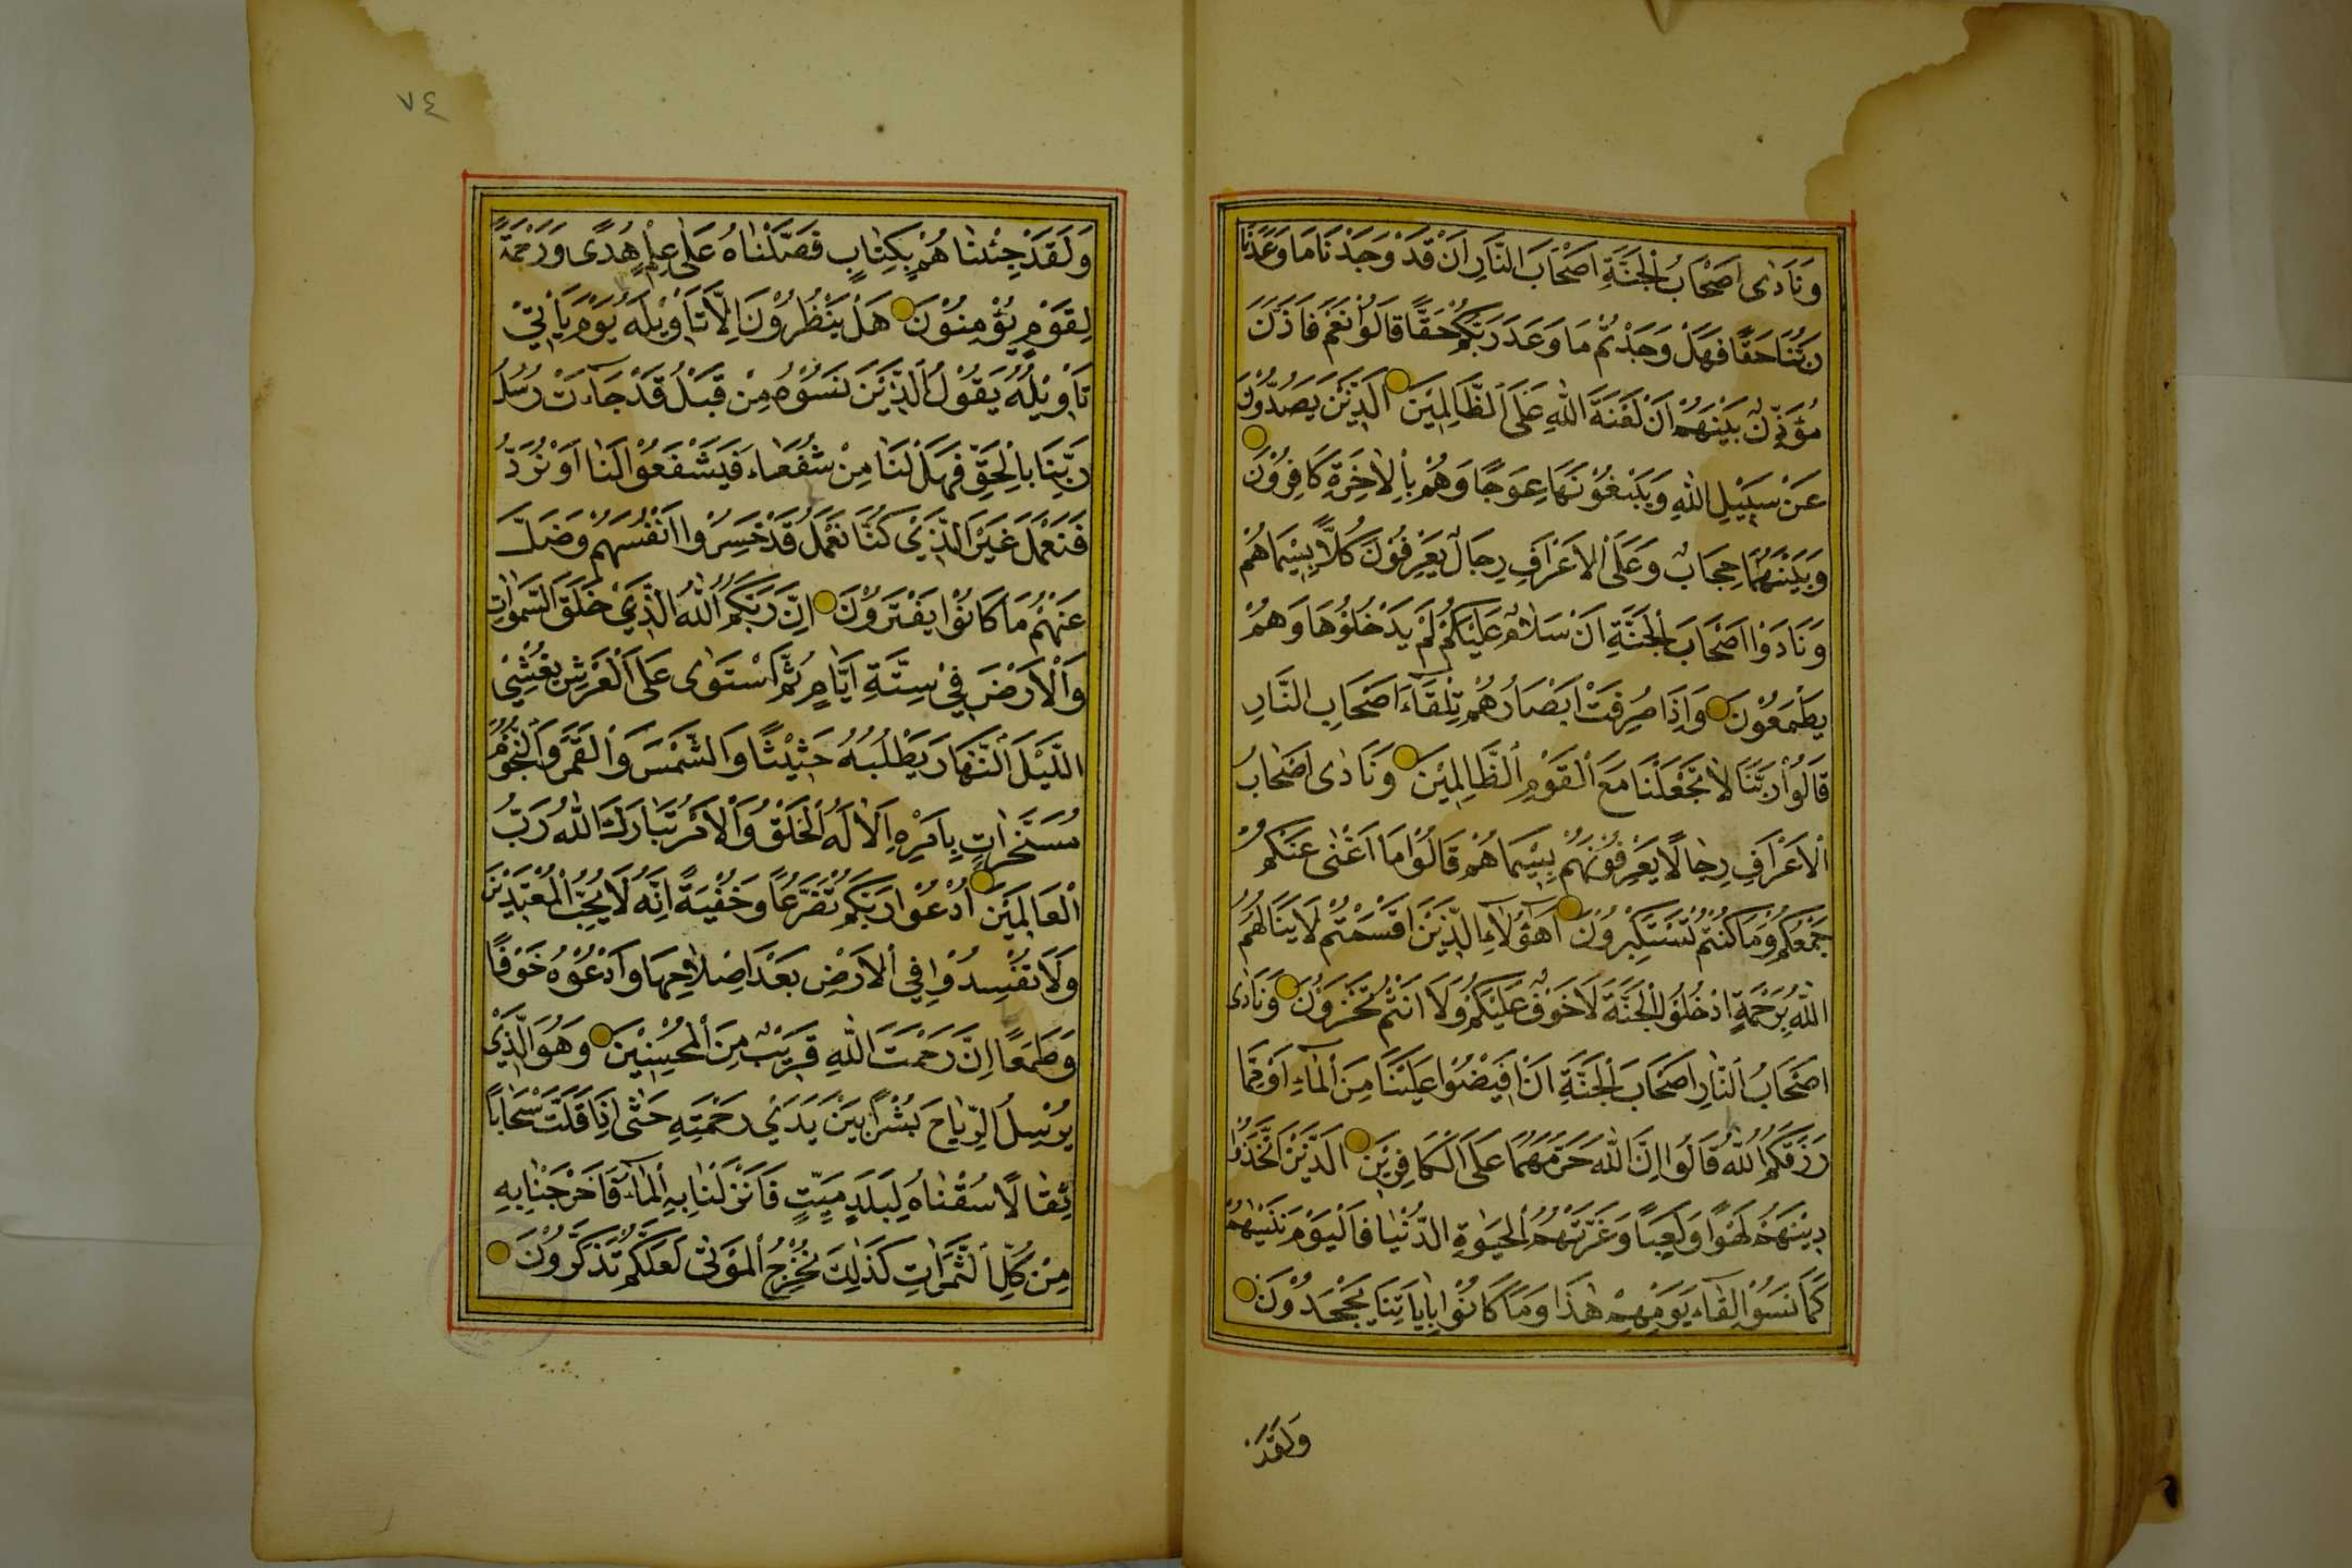 وَنَادٰى اَصْحَابُ الْجَنَّةِ اَصْحَابَ النَّارِ اَنْ قَدْ وَجَدْنَا مَا وَعَدَنَا
رَبُّنَا حَقًّا فَهَلْ وَجَدْتُمْ مَا وَعَدَ رَبُّكُمْ حَقًّا قَالُوا نَعَمْ فَاَذَّنَ
مُؤَذِّنٌ بَيْنَهُمْ اَنْ لَعْنَةُ اللّٰهِ عَلَى الظَّالِمِيْنَ الَّذِيْنَ يَصُدُّوْنَ
عَنْ سَبِيْلِ اللّٰهِ وَيَبْغُوْنَهَا عِوَجًا وَهُمْ بِالْاٰخِرَةِ كَافِرُوْنَ
وَبَيْنَهُمَا حِجَابٌ وَعَلَى الْاَعْرَافِ رِجَالٌ يَعْرِفُوْنَ كُلًّا بِسِيْمَاهُمْ
وَنَادَوْا اَصْحَابَ الْجَنَّةِ اَنْ سَلَامٌ عَلَيْكُمْ لَمْ يَدْخُلُوْهَا وَهُمْ
يَطْمَعُوْنَ وَاِذَا صُرِفَتْ اَبْصَارُهُمْ تِلْقَاءَ اَصْحَابِ النَّارِ
قَالُوْا رَبَّنَا لَا تَجْعَلْنَا مَعَ الْقَوْمِ الظَّالِمِيْنَ وَنَادٰى اَصْحَابُ
الْاَعْرَافِ رِجَالًا يَعْرِفُوْنَهُمْ بِسِيْمَاهُمْ قَالُوْا مَا اَغْنٰى عَنْكُمْ
جَمْعُكُمْ وَمَا كُنْتُمْ تَسْتَكْبِرُوْنَ اَهٰؤُلَاءِ الَّذِيْنَ اَقْسَمْتُمْ لَا يَنَالُهُمُ
اللّٰهُ بِرَحْمَةٍ اُدْخُلُوا الْجَنَّةَ لَا خَوْفٌ عَلَيْكُمْ وَلَا اَنْتُمْ تَحْزَنُوْنَ وَنَادٰى
اَصْحَابُ النَّارِ اَصْحَابَ الْجَنَّةِ اَنْ اَفِيْضُوْا عَلَيْنَا مِنَ الْمَاءِ اَوْ مِمَّا
رَزَقَكُمُ اللّٰهُ قَالُوْا اِنَّ اللّٰهَ حَرَّمَهُمَا عَلَى الْكَافِرِيْنَ الَّذِيْنَ اتَّخَذُوْا
دِيْنَهُمْ لَهْوًا وَلَعِبًا وَغَرَّتْهُمُ الْحَيٰوةُ الدُّنْيَا فَالْيَوْمَ نَنْسٰيهُمْ
كَمَا نَسُوْا لِقَاءَ يَوْمِهِمْ هٰذَا وَمَا كَانُوْا بِاٰيَاتِنَا يَجْحَدُوْنَ
وَلَقَدْ
٧٤
وَلَقَدْ جِئْنَاهُمْ بِكِتَابٍ فَصَّلْنَاهُ عَلٰى عِلْمٍ هُدًى وَرَحْمَةً
لِقَوْمٍ يُؤْمِنُوْنَ هَلْ يَنْظُرُوْنَ اِلَّا تَاْوِيْلَهُ يَوْمَ يَاْتِيْ
تَاْوِيْلُهُ يَقُوْلُ الَّذِيْنَ نَسُوْهُ مِنْ قَبْلُ قَدْ جَاءَتْ رُسُلُ
رَبِّنَا بِالْحَقِّ فَهَلْ لَنَا مِنْ شُفَعَاءَ فَيَشْفَعُوْا لَنَا اَوْ نُرَدُّ
فَنَعْمَلَ غَيْرَ الَّذِيْ كُنَّا نَعْمَلُ قَدْ خَسِرُوْا اَنْفُسَهُمْ وَضَلَّ
عَنْهُمْ مَا كَانُوْا يَفْتَرُوْنَ اِنَّ رَبَّكُمُ اللّٰهُ الَّذِيْ خَلَقَ السَّمٰوَاتِ
وَالْاَرْضَ فِيْ سِتَّةِ اَيَّامٍ ثُمَّ اسْتَوٰى عَلَى الْعَرْشِ يُغْشِيْ
اللَّيْلَ النَّهَارَ يَطْلُبُهُ حَثِيْثًا وَالشَّمْسَ وَالْقَمَرَ وَالنُّجُوْمَ
مُسَخَّرَاتٍ بِاَمْرِهِ اَلَا لَهُ الْخَلْقُ وَالْاَمْرُ تَبَارَكَ اللّٰهُ رَبُّ
الْعَالَمِيْنَ اُدْعُوْا رَبَّكُمْ تَضَرُّعًا وَخُفْيَةً اِنَّهُ لَا يُحِبُّ الْمُعْتَدِيْنَ
وَلَا تُفْسِدُوْا فِي الْاَرْضِ بَعْدَ اِصْلَاحِهَا وَادْعُوْهُ خَوْفًا
وَطَمَعًا اِنَّ رَحْمَتَ اللّٰهِ قَرِيْبٌ مِنَ الْمُحْسِنِيْنَ وَهُوَ الَّذِيْ
يُرْسِلُ الرِّيَاحَ بُشْرًا بَيْنَ يَدَيْ رَحْمَتِهِ حَتّٰى اِذَا اَقَلَّتْ سَحَابًا
ثِقَالًا سُقْنَاهُ لِبَلَدٍ مَيِّتٍ فَاَنْزَلْنَا بِهِ الْمَاءَ فَاَخْرَجْنَا بِهِ
مِنْ كُلِّ الثَّمَرَاتِ كَذٰلِكَ نُخْرِجُ الْمَوْتٰى لَعَلَّكُمْ تَذَكَّرُوْنَ